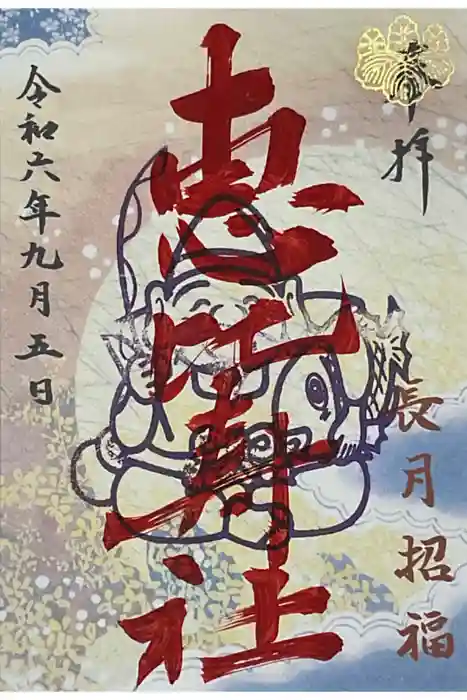 奉拝
長月招福
恵比寿社
令和六年九月五日